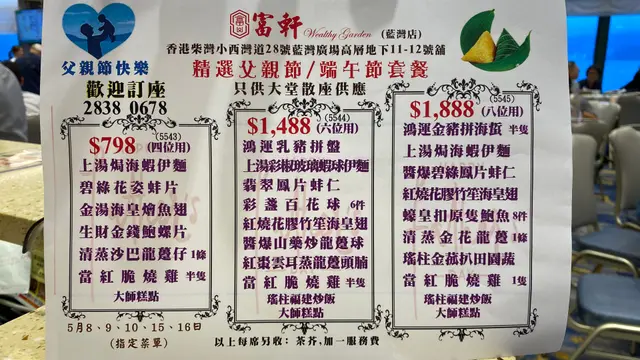 富軒 Wealthy Garden (藍灣店)
香港柴灣小西灣道28號藍灣廣場高層地下11-12號舖
父親節快樂
精選父親節/端午節套餐
歡迎訂座
2838 0678
只供大堂散座供應
(5543)
$798 (四位用)
上湯焗海蝦伊麵
碧綠花姿蚌片
金湯海皇燴魚翅
生財金錢鮑螺片
清蒸沙巴龍躉仔 1條
當紅脆燒雞 半隻
大師糕點
(5544)
$1,488 (六位用)
鴻運乳豬拼盤
上湯彩椒玻璃蝦球伊麵
翡翠鳳片蚌仁
彩盞百花球 6件
紅燒花膠竹笙海皇翅
醬爆山藥炒龍躉球
紅棗雲耳蒸龍躉頭腩
當紅脆燒雞 半隻
瑤柱福建炒飯
大師糕點
(5545)
$1,888 (八位用)
鴻運金豬拼海蜇 半隻
上湯焗海蝦伊麵
醬爆碧綠鳳片蚌仁
紅燒花膠竹笙海皇翅
蠔皇扣原隻鮑魚 8件
清蒸金花龍躉 1條
瑤柱金菇扒田園蔬
當紅脆燒雞 1隻
瑤柱福建炒飯
大師糕點
5月8、9、10、15、16日
(指定菜單)
以上每席另收：茶芥,加一服務費